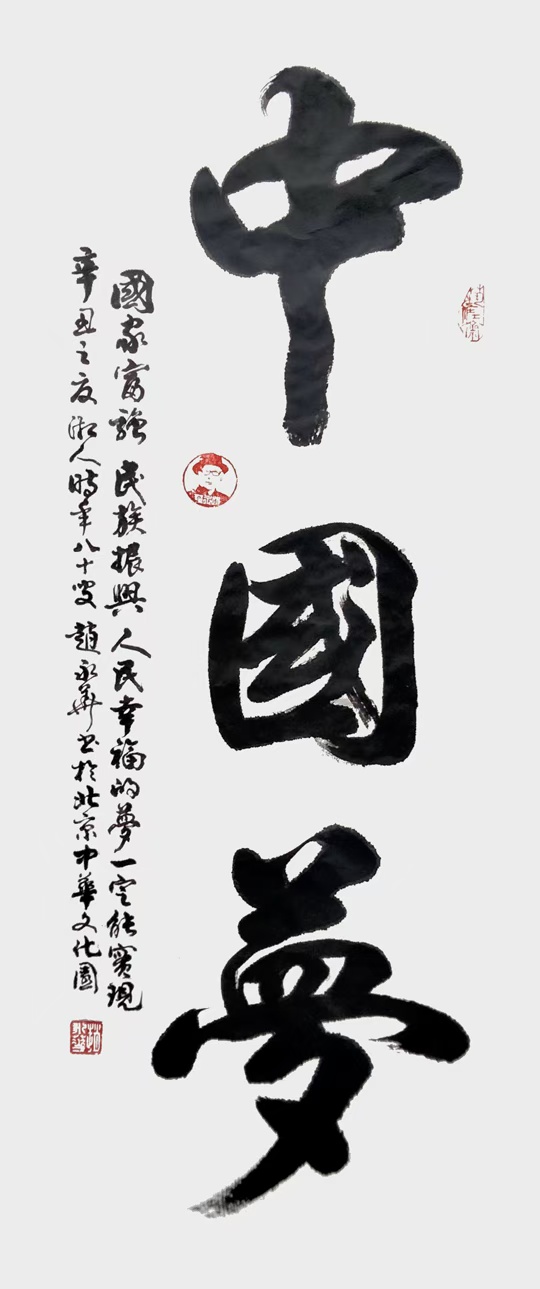 中國夢
國家富強 民族振興 人民幸福的夢一定能實現
辛丑之夏 湘人時年八十叟 趙永華书於北京中華文化園